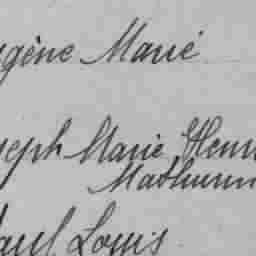 ugène Marie
seph Marie Henri
Mathurin
Paul Louis